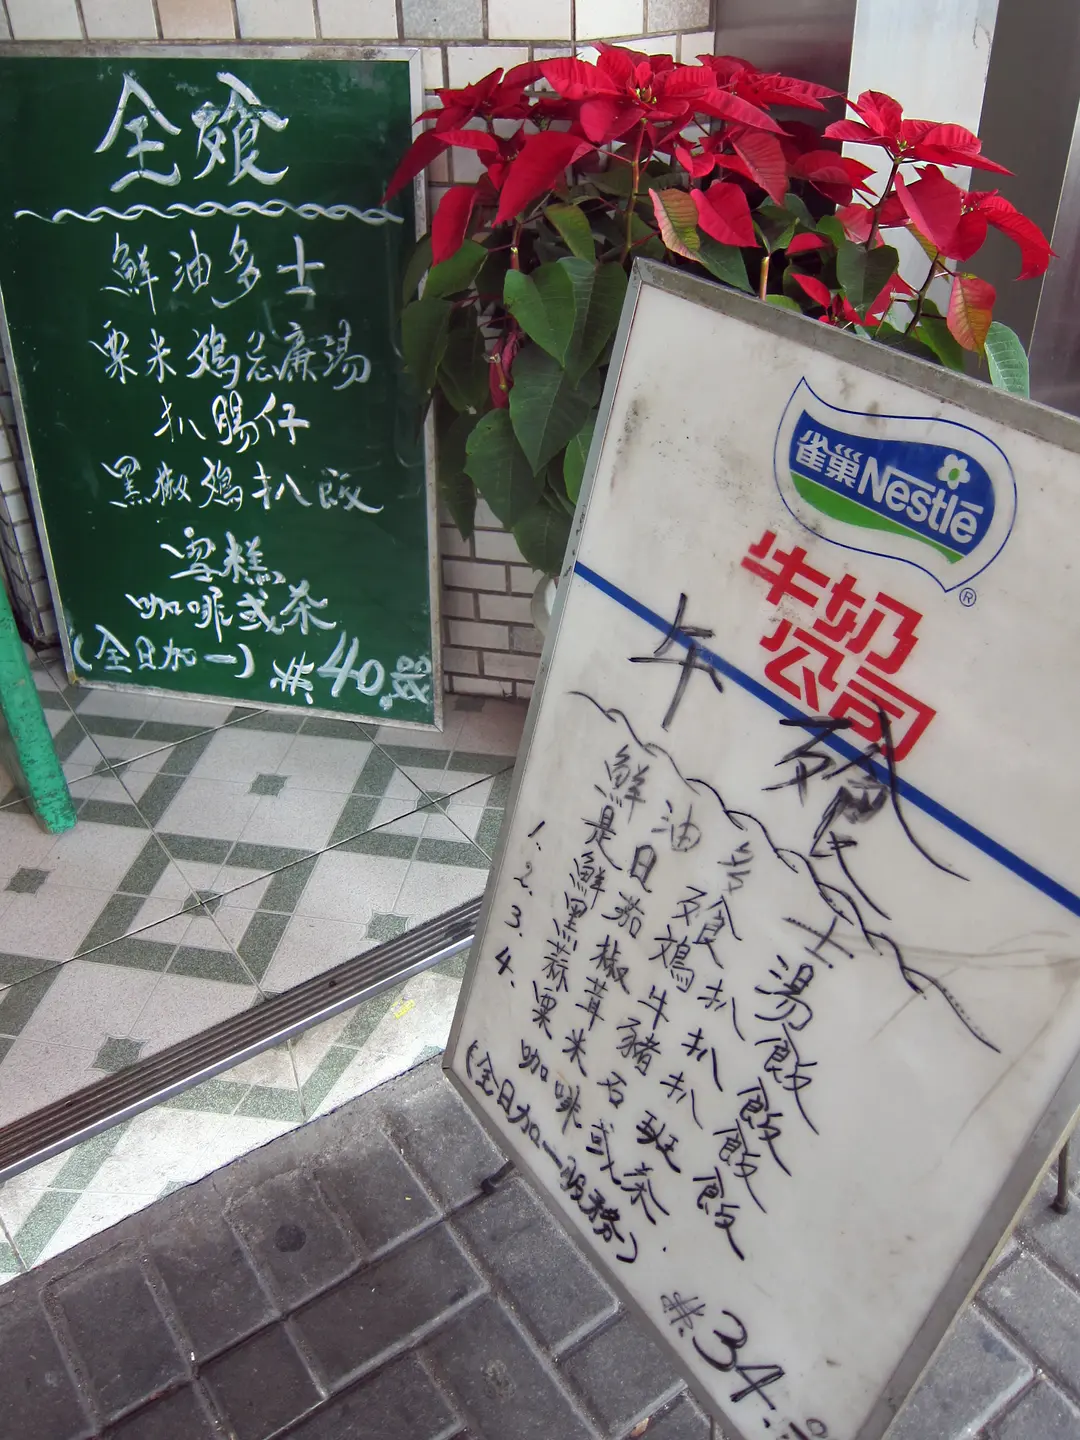 全飱
鮮油多士
粟米鷄忌廉湯
扒腸仔
黑椒鷄扒飯
雪糕
咖啡或茶
(全日加一)
$40
雀巢 Nestlé
®
牛奶
公司
午飱
鮮油多士
是日餐湯
1. 鮮茄鷄扒飯
2. 黑椒牛扒飯
3. 蒜茸豬扒飯
4. 粟米石班飯
咖啡或茶
(全日加一服務)
$34